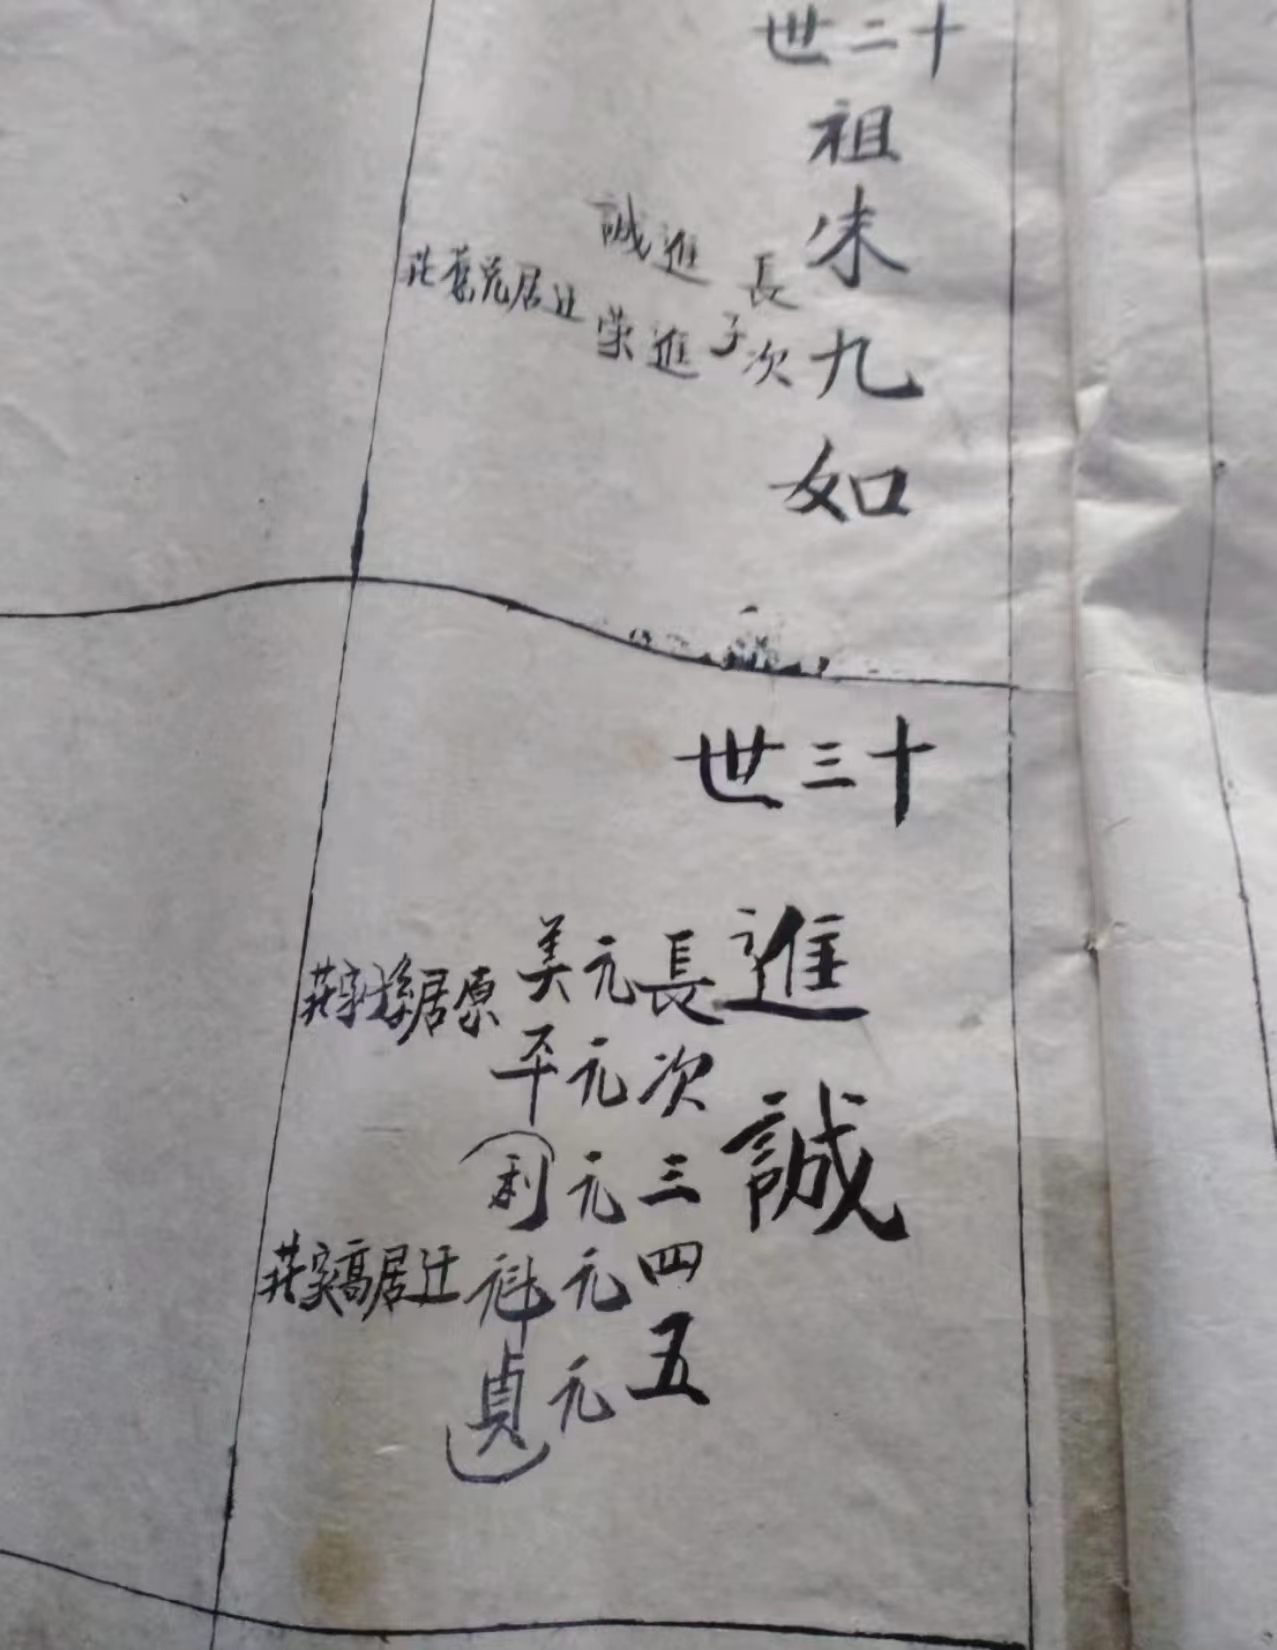 十二世
祖朱九如
長子進誠
次進榮 迁居莊
十三世
進誠
長元美 原居家莊
次元平
三元(利
四元 迁居高家莊
五元貞)